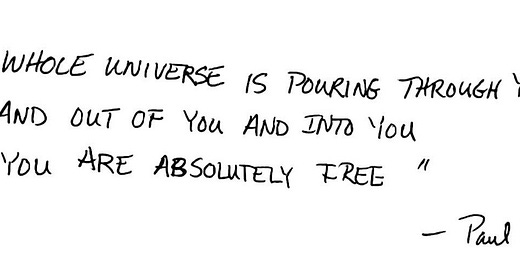 WHOLE UNIVERSE IS POURING THROUGH Y
AND OUT OF YOU AND INTO YOU
YOU ARE ABSOLUTELY FREE "
— Paul